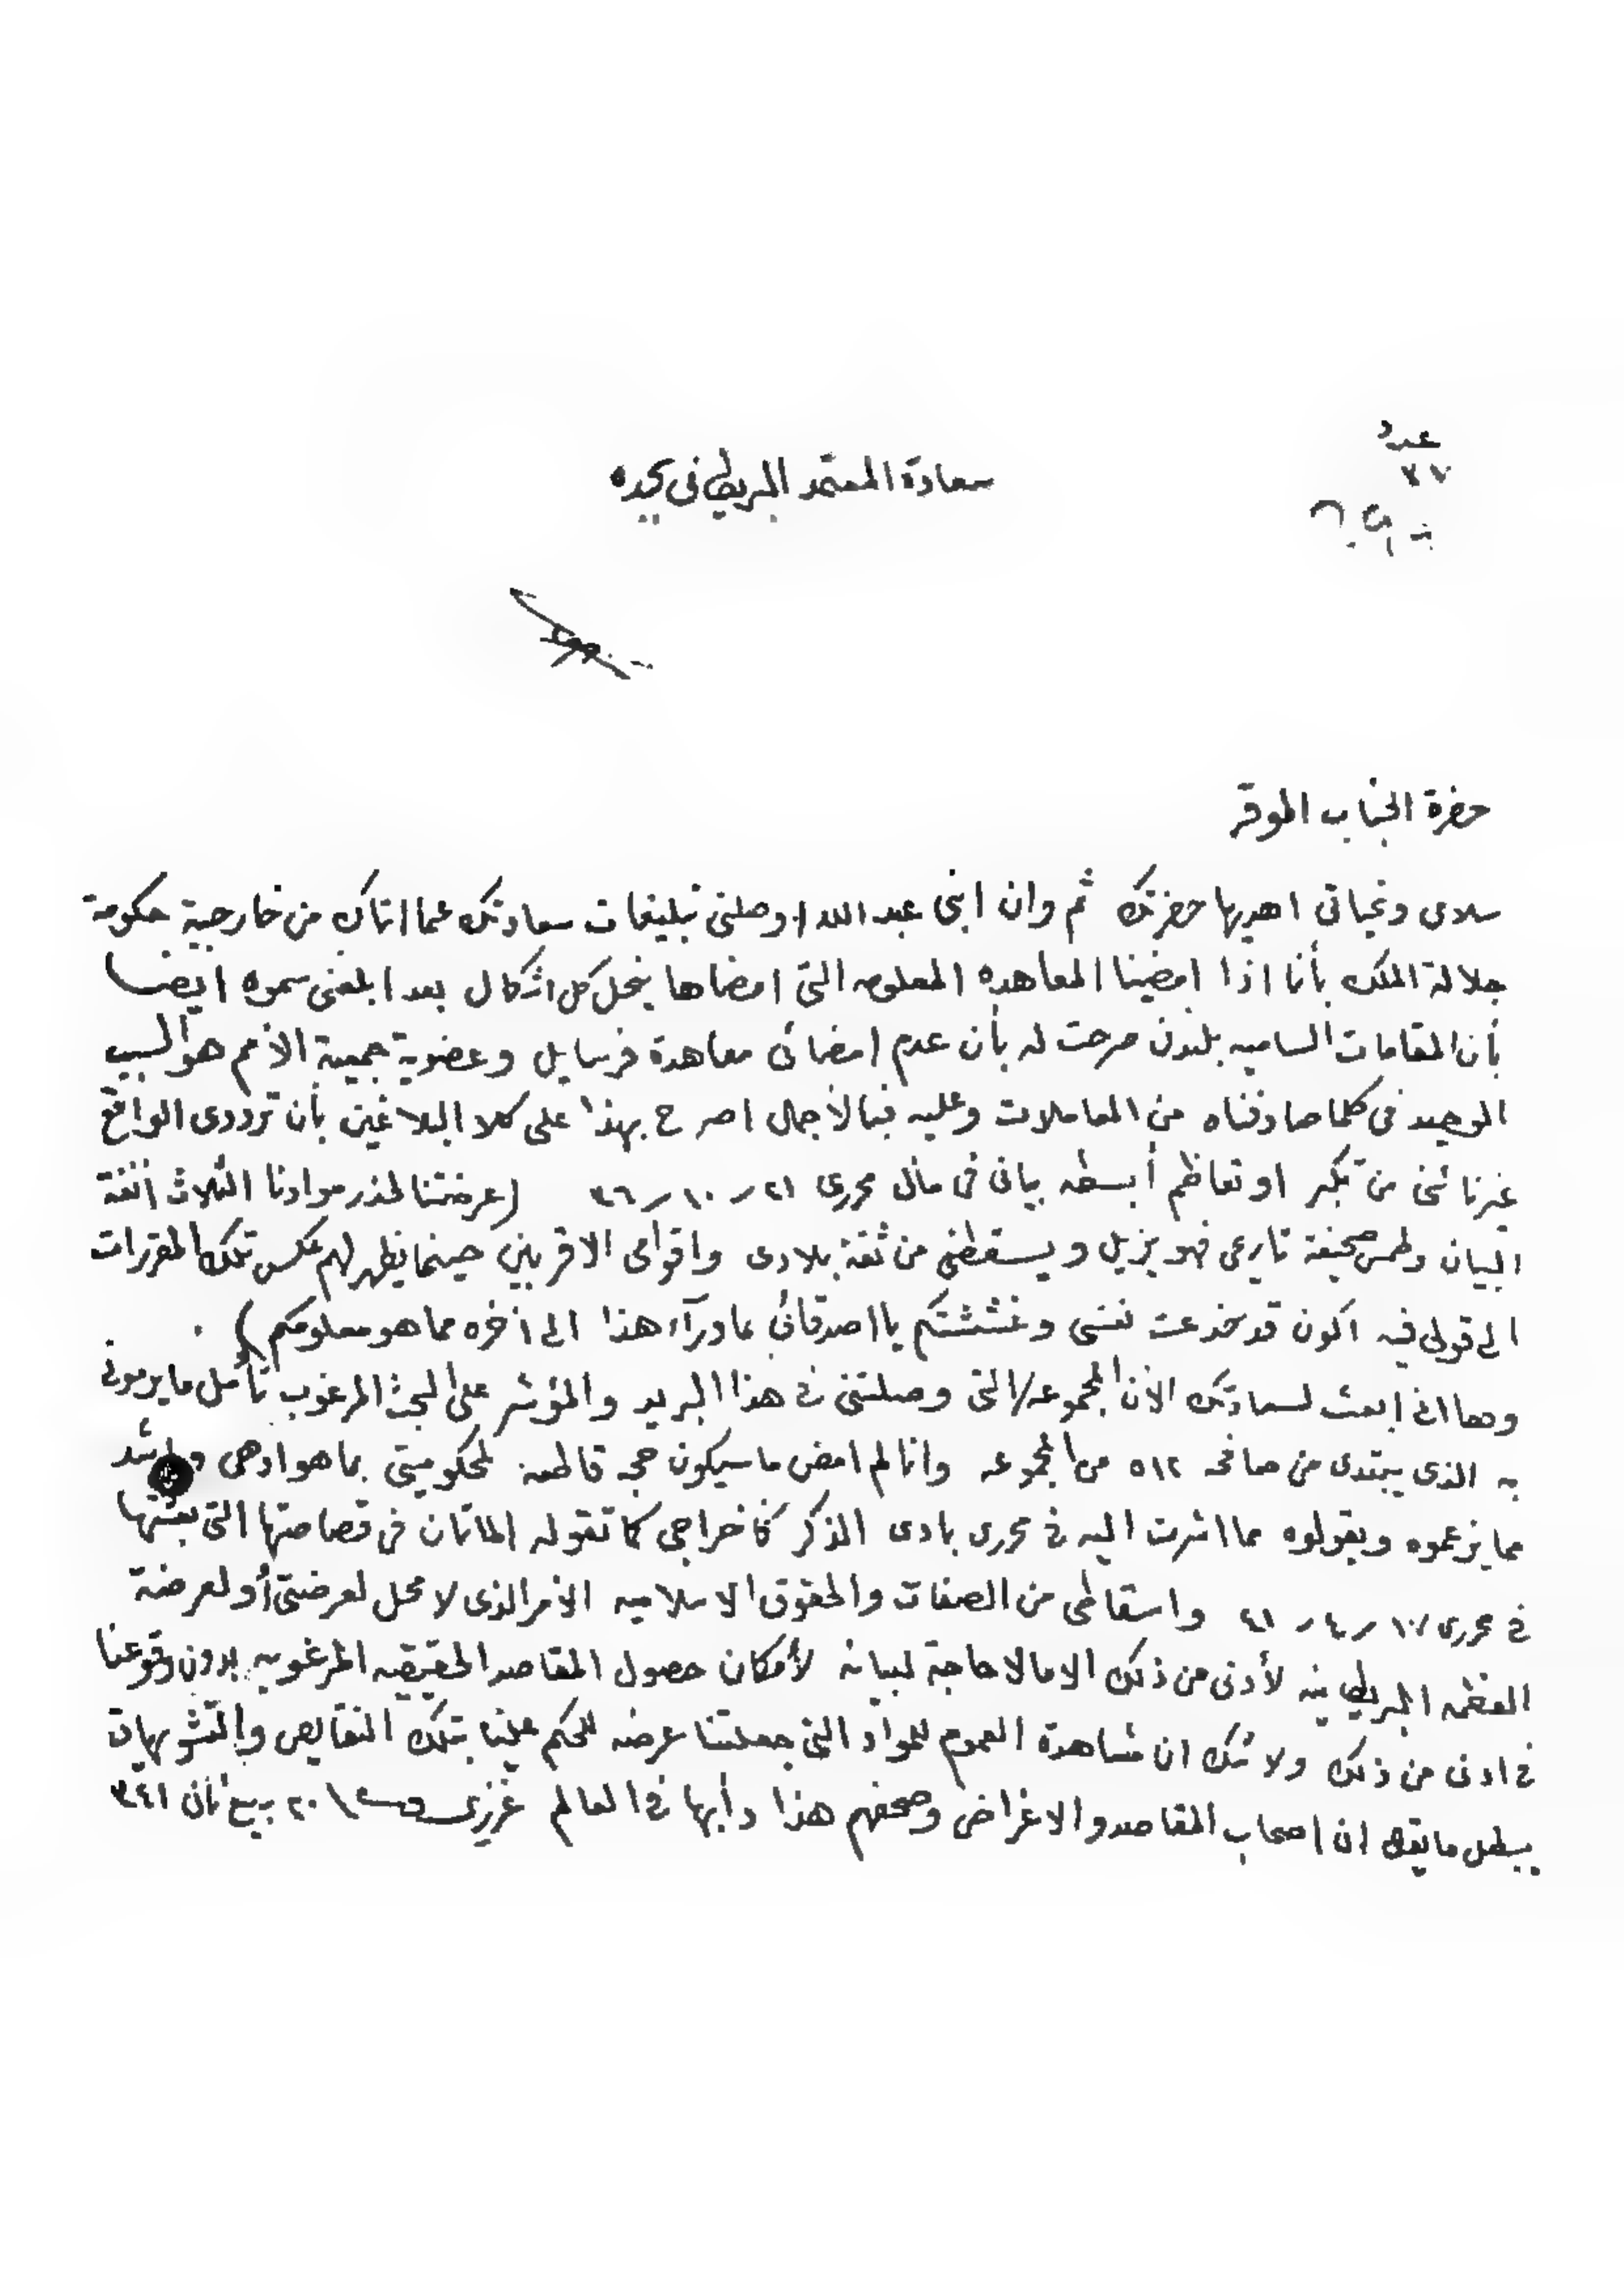 عدد
٣٧
سعادة المعتمد البريطاني بجده
حضرة الجناب الموقر
سلامى وتحياتى اهديها حضرتك ثم وان ابنى عبد الله اوصلنى تبليغات سعادتك عما اتاك من خارجية حكومة
جلالة الملك بأنا اذا امضينا المعاهده المعلومه التى امضاها ينحل كل اشكال بعد ابلغنى سموه ايضا
بأن المقامات الساميه بلندن صرحت له بأن عدم امضائى معاهدة فرسايل وعضوية جمعية الأمم هو السبب
الوحيد فى كلما صادفناه من المعاملات وعليه فبالأجمال اصرح بهذا على كلا البلاغين بأن ترددى الواقع
غير ناشئ من تكبر او تعاظم أبسطه بيان فى مآل محررى ٢١ ر ١٠ ر ٣٦ (عرضتنا لحذر موادنا الثلاث آنفة
البيان وطمس صحيفة تاريخى فهو يزيل ويسقطنى من ثقة بلادى واقوامى الاقربين حينما يظهر لهم عكس تلك المقررات
الى قولى فيه اكون قد خدعت نفسى وغششتكم يا اصدقائى بما ورآء هذا الى آخره مما هو معلومكم)
وها انى ابعث لسعادتك الآن المجموعه التى وصلتنى فى هذا البريد والمؤشر على البحث المرغوب تأمل ما يرمونى
به الذى يبتدى من صافحه ٥١٢ من المجموعه وانا لم امض ما سيكون حجه قاطعة لمحكوميتى بما هو ادهى واشد
مما يزعموه ويقولوه مما اشرت اليه فى محررى بادى الذكر كأخراجى كما تقوله الطان فى قصاصتها التى بعثتها
فى محررى ١٠ ر ٤ ر ٤١ واسقاطى من الصفات والحقوق الاسلاميه الأمر الذى لا محل لعرضتى أو لعرضة
العظمه البريطانيه لأدنى من ذلك الامالا حاجة لبيانه لأمكان حصول المقاصد الحقيقيه المرغوبه بدون وقوعنا
فى ادنى من ذلك ولا شك ان مشاهدة العموم للمواد التى جعلتنا عرضه للحكم علينا بتلك النقايص والتشويهات
يبطل ما يقال ان اصحاب المقاصد والاغراض وصحفهم هذا دأبها فى العالم عزيزى ٢٠ ربيع ثان ٣٤١